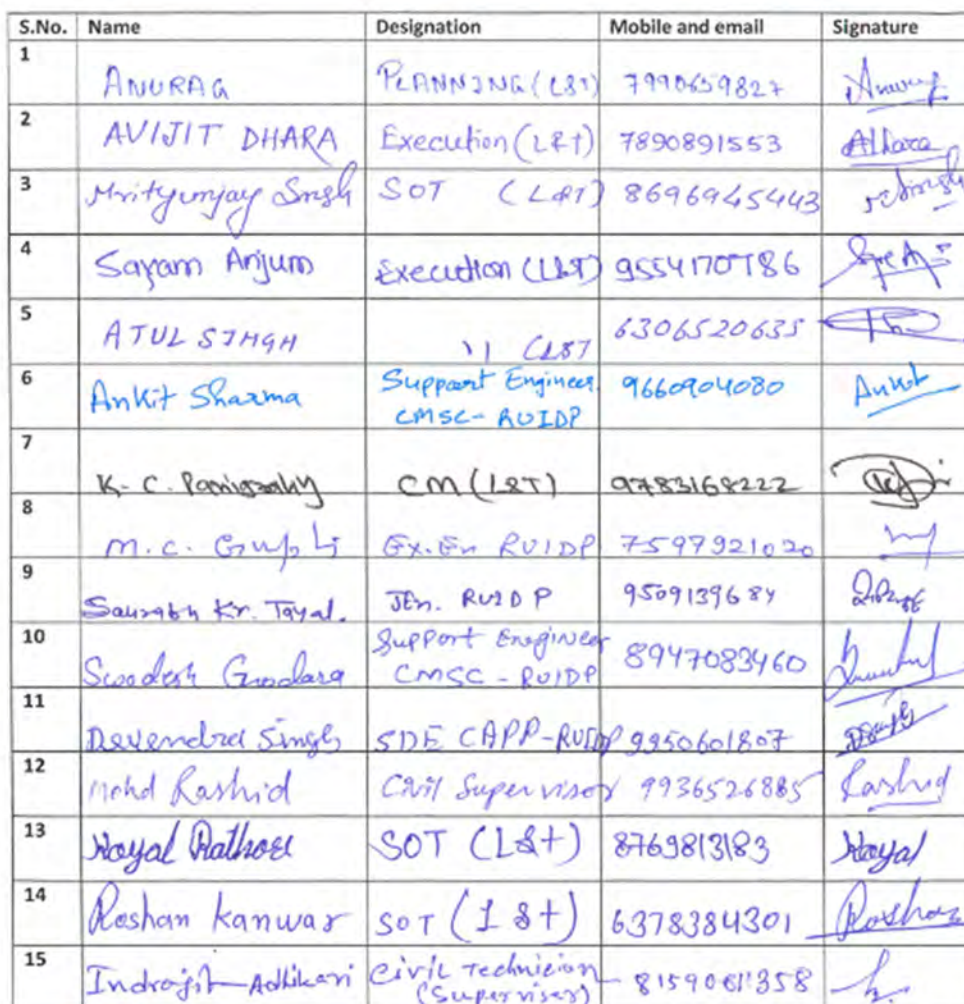 S.No. Name Designation Mobile and email Signature
1 ANURAG PLANNING (L&T) 7990659827 Anurag
2 AVIJIT DHARA Execution (L&T) 7890891553 ADhara
3 Mrityunjay Singh SOT (L&T) 8696945443
4 Sayam Anjum Execution (L&T) 9554170786
5 ATUL SINGH 11 (L&T 6306520635
6 Ankit Sharma Support Engineer 9660904080 Ankit
CMSC-RUIDP
7 K. C. Panigrahy CM (L&T) 9783168222
8 M.C. Ex.En RUIDP 7597921020
9 Saurabh Kr. Tayal. JEn. RUIDP 9509139684
10 Swodesh Gundara Support Enogineer 8947083460
CMSC - RUIDP
11 Devendra Singh SDE CAPP-RUIDP 9950601807
12 Mohd Rashid Civil Supervisor 9936526885 Rashid
13 Hayal Rathore SOT (L&t) 8769813183 Hayal
14 Roshan Kanwar SOT (L&t) 6378384301 Roshan
15 Indrojit Adhikari Civil Technicion 8159061358
(Supervisor)